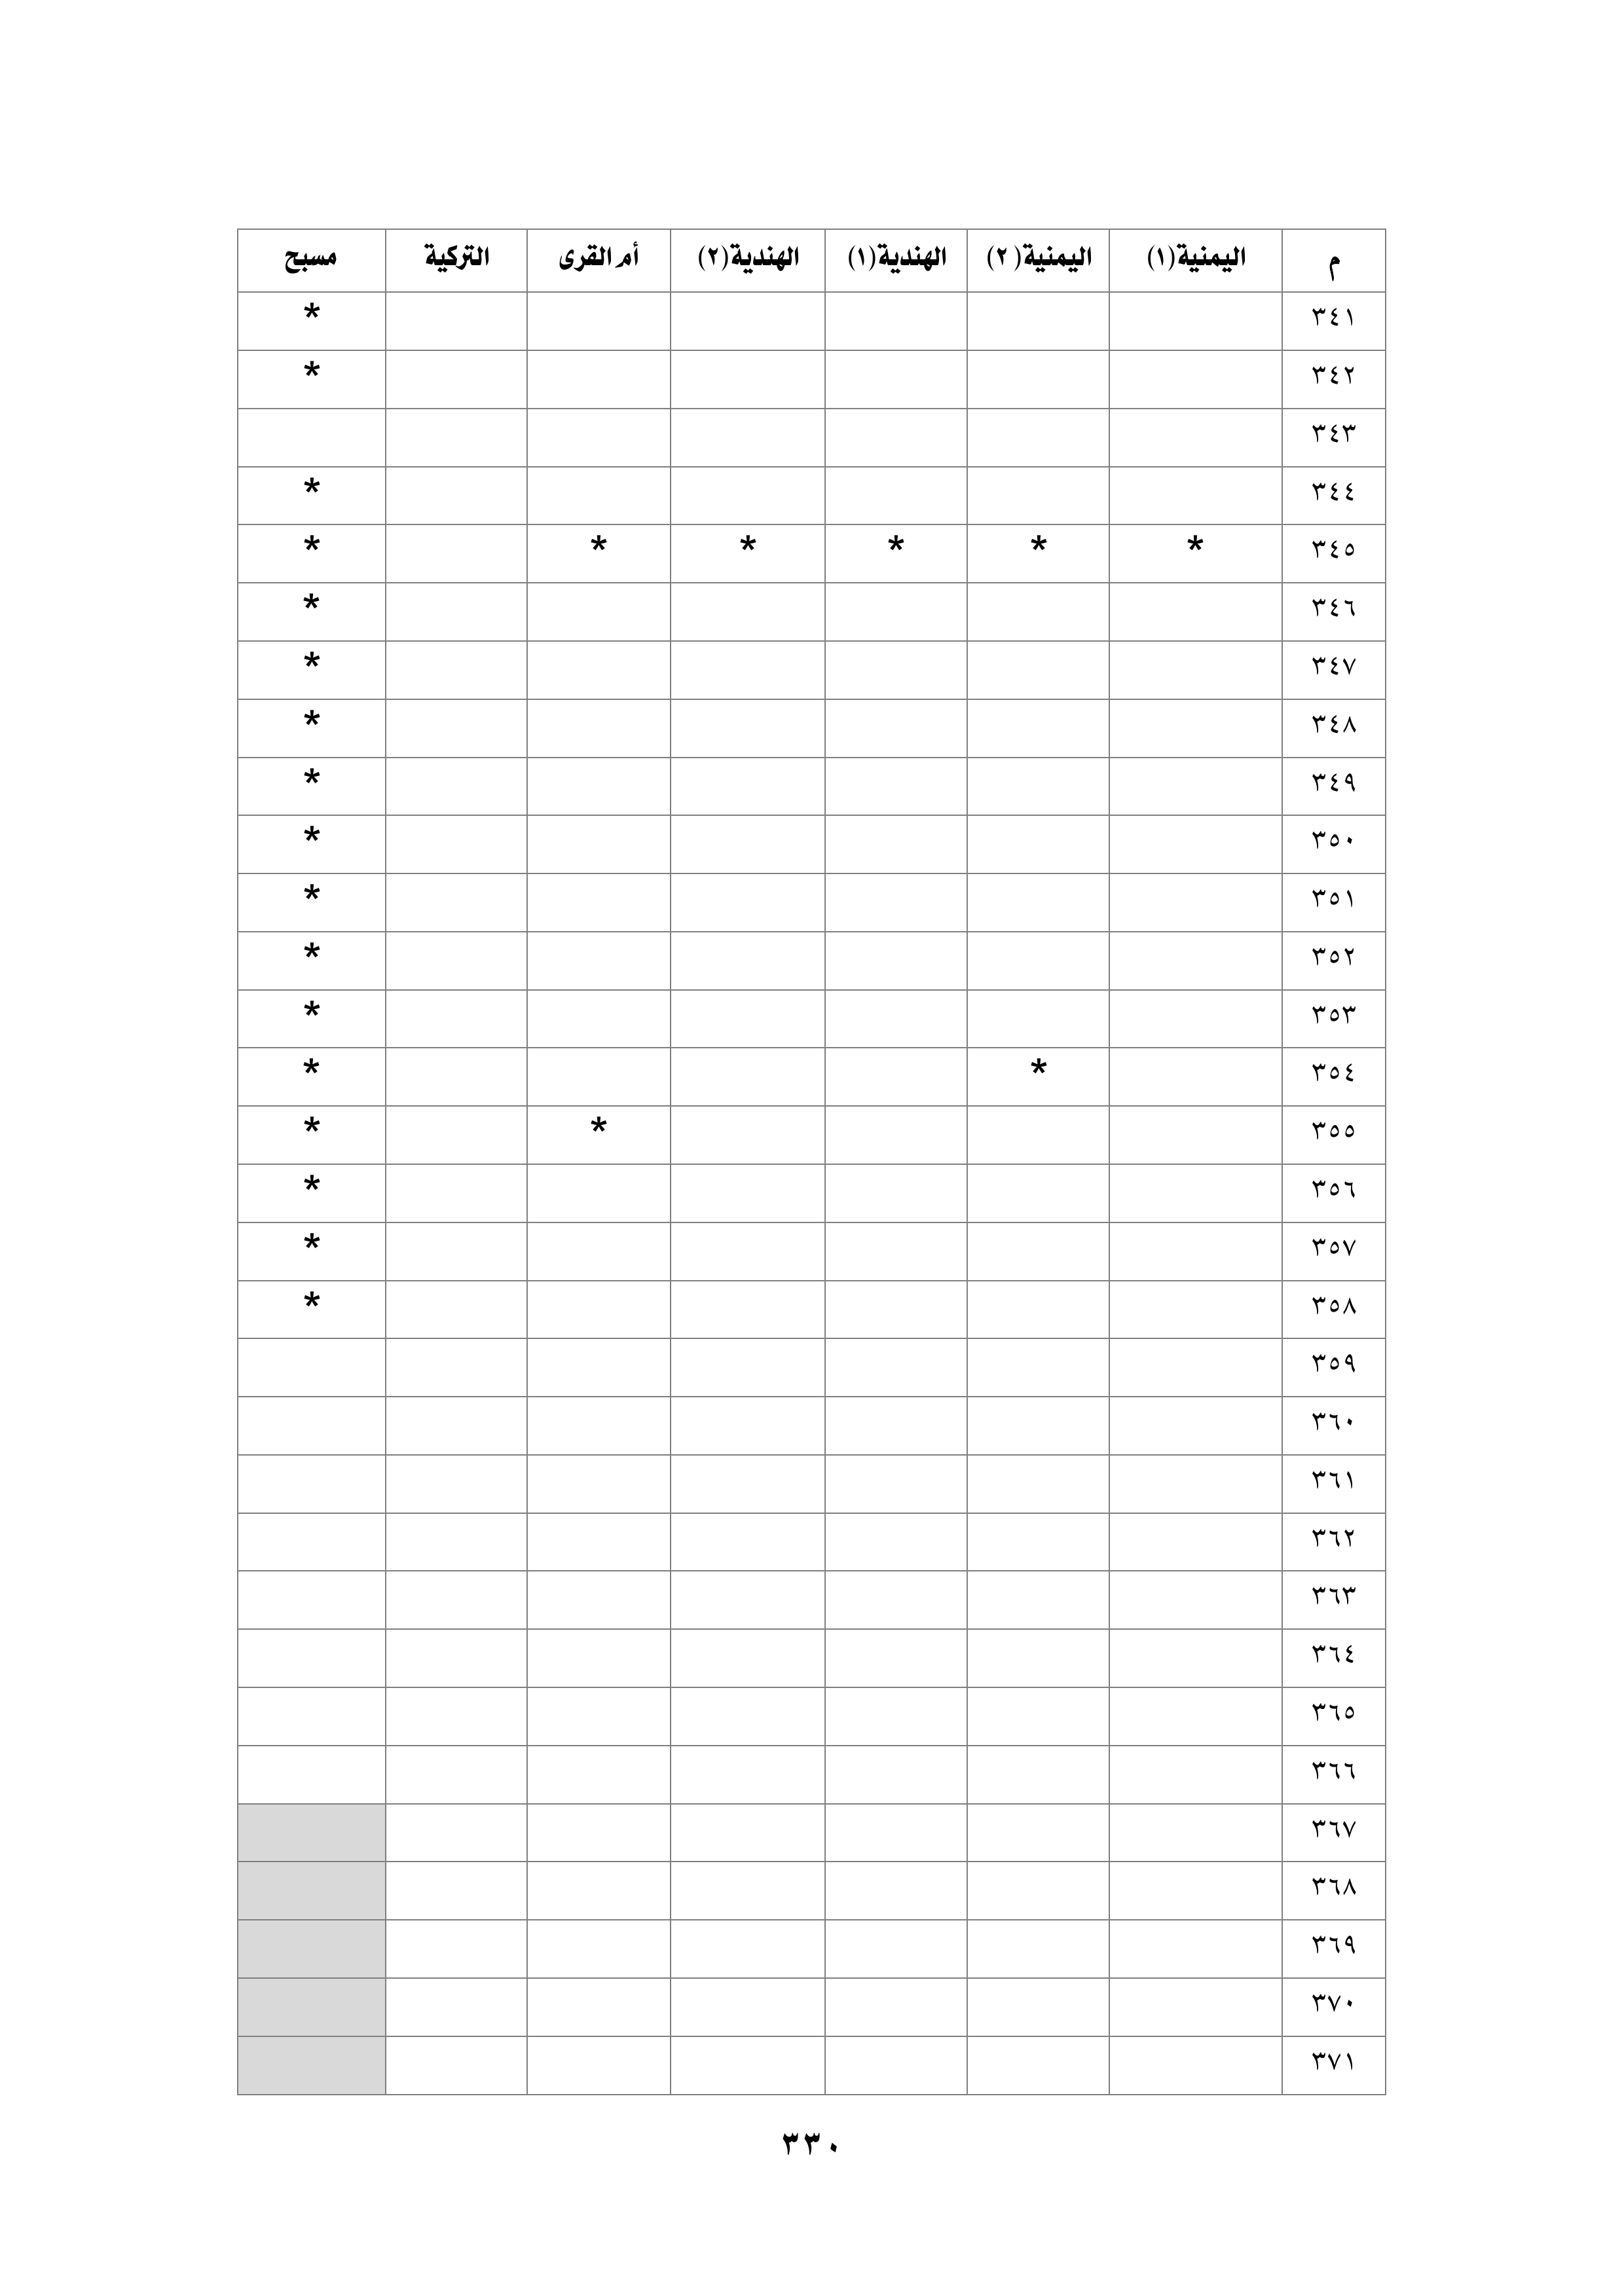 م اليمنية(١) اليمنية( ٢) الهندية(١) الهندية(٢) أم القرى التركية مسبح
٣٤١ *
٣٤٢ *
٣٤٣
٣٤٤ *
٣٤٥ * * * * * *
٣٤٦ *
٣٤٧ *
٣٤٨ *
٣٤٩ *
٣٥٠ *
٣٥١ *
٣٥٢ *
٣٥٣ *
٣٥٤ * *
٣٥٥ * *
٣٥٦ *
٣٥٧ *
٣٥٨ *
٣٥٩
٣٦٠
٣٦١
٣٦٢
٣٦٣
٣٦٤
٣٦٥
٣٦٦
٣٦٧
٣٦٨
٣٦٩
٣٧٠
٣٧١
٣٣٠